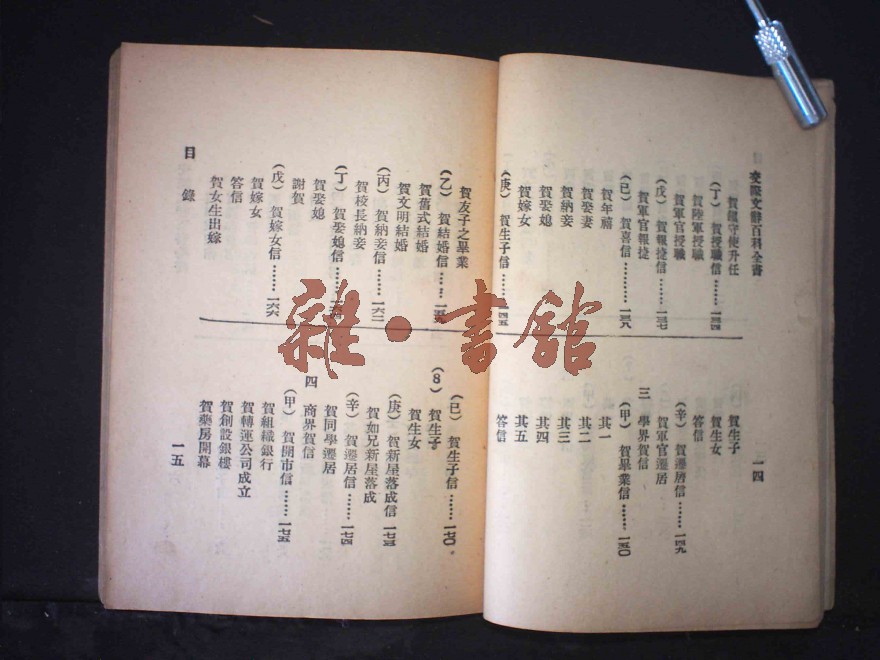 交際文辭百科全書
賀鎮守使升任
(丁) 賀授職信……一三四
賀陸軍授職
賀軍官授職
(戊) 賀報捷信……一三七
賀軍官報捷
(己) 賀喜信……一三八
賀年禧
賀娶妻
賀納妾
賀娶媳
賀嫁女
(庚) 賀生子信……一四五
賀生子
賀生女
答信
(辛) 賀遷居信……一四九
賀軍官遷居
三 學界賀信
(甲) 賀畢業信……一五〇
其一
其二
其三
其四
其五
答信
一四
賀友子之畢業
(乙) 賀結婚信……
賀舊式結婚
賀文明結婚
(丙) 賀納妾信……一六二
賀校長納妾
(丁) 賀娶媳信……
賀娶媳
謝賀
(戊) 賀嫁女信……一六六
賀嫁女
答信
賀女生出嫁
目錄
(已) 賀生子信……一七〇
(8) 賀生子
賀生女
(庚) 賀新屋落成信……一七三
賀如兄新屋落成
(辛) 賀遷居信……一七四
賀同學遷居
四 商界賀信
(甲) 賀開市信……一七五
賀組織銀行
賀轉運公司成立
賀創設銀樓
賀藥房開幕
一五
雜·書館